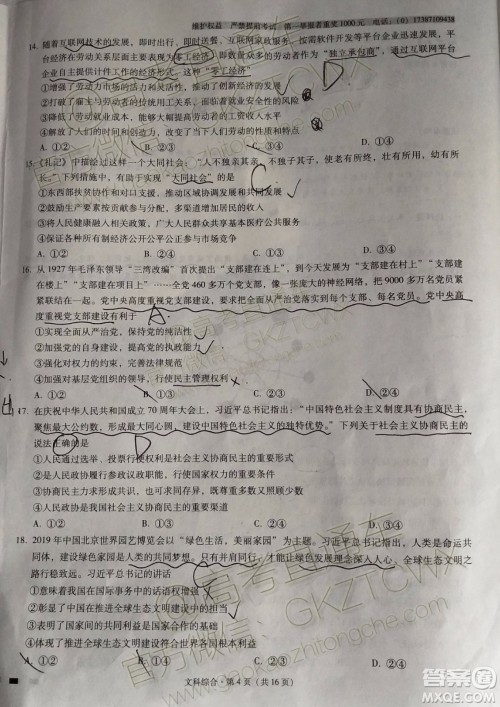 维护权益 严禁提前考试 第一举报者重奖1000元 电话:(0) 17387109438
14. 随着互联网技术的发展,即时通信、互联网家政服务等新兴互联网平台企业迅速发展,平
台经济在劳动者方面主要表现为零工经济,即众多的劳动者作为“独立承包商”,通过平台
企业自主提供计件工作的经济形式,这种“零工经济”
①增强了劳动者的创新能力,推动了创新经济的发展
②打破了雇主与劳动者的传统用工关系,面临着就业安全的风险
③降低劳动者的就业成本,能够大幅提高劳动者的工资水平
④解放了人们的劳动时间,体现了自由与弹性的特点
A. ①② B. ①③ C. ②④ D. ①④
15. 《礼记》中描绘过这样一个大同社会:“人不独亲其亲,不独子其子,使老有所终,壮有所用,幼有所
长。”下列措施中,有助于实现“大同社会”的是
①东西部扶贫协作和对口支援,推动区域协调发展和共同发展
②鼓励发展现代商业保险,构建以其为基础的社会保障体系
③将人民健康融入政策,实现广大人民群众共享基本医疗公共服务
④保证各种所有制经济公开公平公正参与市场竞争
A. ①② B. ②④ C. ①③ D. ③④
16. 从1927年毛泽东领导“三湾改编”首次提出“支部建在连上”,到今天发展为“支部建在村上”“支部
建在楼上”“支部建在项目上”……全党460多万个党支部,像一张庞大的神经网络,把9000多万名党员紧
紧联结在一起。党中央高度重视党支部建设,要求把全面从严治党落实到每个支部、每名党员。党中央高
度重视党支部建设有利于
①实现全面从严治党,保持党的纯洁性
②加强党的自身建设,提高党的执政能力
③强化对权力的约束,完善法律规范
④加强基层党组织建设,行使民主管理权利
A. ①② B. ①③ C. ②③ D. ②④
17. 在庆祝中华人民共和国成立70周年大会上,习近平总书记指出:“中国特色社会主义制度具有协商民主,
聚集最大的公约数,形成最大同心圆,建设中国特色社会主义的独特优势。”下列关于我国协商民主的
说法正确的是
①人民通过选举、投票行使权利是人民民主的重要形式
②人民政协履行参政议政职能,发展社会主义协商民主
③人民政协是社会主义协商民主的重要渠道
④人民内部各方面就共同性问题进行协商是人民民主的重要形式
A. ①② B. ①③ C. ②④ D. ③④
18. 2019年中国北京世界园艺博览会以“绿色生活,美丽家园”为主题。习近平总书记指出,人类是命运共
同体,建设绿色家园是人类的共同梦想。只有并肩同行,才能让绿色发展理念深入人心、全球生态文明之
路行稳致远。习近平总书记的讲话
①意味着我国在国际事务中的话语权增强
②彰显了中国在推动全球生态文明建设中的担当
③表明了国家间的共同利益是国家合作的基础
④体现了推进全球生态文明建设符合世界各国根本利益
A. ①② B. ①③ C. ②④ D. ③④
文科综合·第4页(共16页)
官方微信公众号:高考直通车
GKZTCWX
www.gkaozhitongche.com
答案圈
MXQE.COM